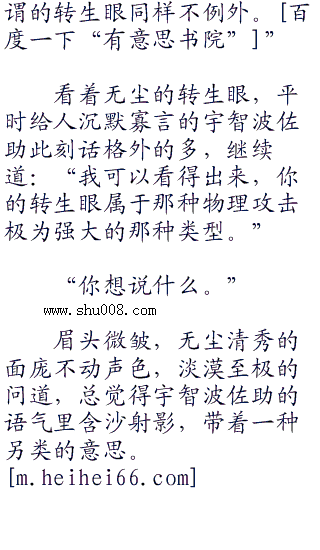 谓的转生眼同样不例外。[百
度一下“有意思书院”]”
看着无尘的转生眼，平
时给人沉默寡言的宇智波佐
助此刻话格外的多，继续
道：“我可以看得出来，你
的转生眼属于那种物理攻击
极为强大的那种类型。”
“你想说什么。”
www.shu008.com
眉头微皱，无尘清秀的
面庞不动声色，淡漠至极的
问道，总觉得宇智波佐助的
语气里含沙射影，带着一种
另类的意思。
[m.heihei66.com]